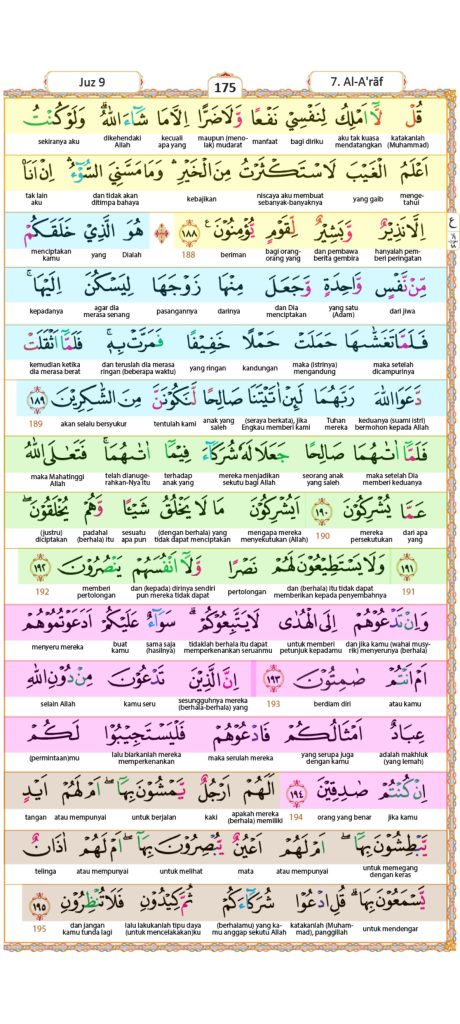 Juz 9
175
7. Al-A'rāf
قُلْ لَّآ اَمْلِكُ لِنَفْسِيْ نَفْعًا وَّلَا ضَرًّا اِلَّا مَا شَاۤءَ اللّٰهُ ۗوَلَوْ كُنْتُ
katakanlah (Muhammad) aku tak kuasa mendatangkan bagi diriku manfaat maupun (meno-lak) mudarat kecuali apa yang dikehendaki Allah sekiranya aku
اَعْلَمُ الْغَيْبَ لَاسْتَكْثَرْتُ مِنَ الْخَيْرِۛ وَمَا مَسَّنِيَ السُّوْۤءُ ۛاِنْ اَنَا۠
menge-tahui yang gaib niscaya aku membuat sebanyak-banyaknya kebajikan dan tidak akan ditimpa bahaya tak lain aku
اِلَّا نَذِيْرٌ وَّبَشِيْرٌ لِّقَوْمٍ يُّؤْمِنُوْنَ ࣖ ١٨٨ ۞ هُوَ الَّذِيْ خَلَقَكُمْ
hanyalah pem-beri peringatan dan pembawa berita gembira bagi orang-orang yang beriman 188 Dialah yang menciptakan kamu
مِّنْ نَّفْسٍ وَّاحِدَةٍ وَّجَعَلَ مِنْهَا زَوْجَهَا لِيَسْكُنَ اِلَيْهَاۚ
dari jiwa yang satu (Adam) dan Dia menciptakan darinya pasangannya agar dia merasa senang kepadanya
فَلَمَّا تَغَشّٰىهَا حَمَلَتْ حَمْلًا خَفِيْفًا فَمَرَّتْ بِهٖ ۚ فَلَمَّآ اَثْقَلَتْ
maka setelah dicampurinya maka (istrinya) mengandung kandungan yang ringan dan teruslah dia merasa ringan (beberapa waktu) kemudian ketika dia merasa berat
دَّعَوَا اللّٰهَ رَبَّهُمَا لَىِٕنْ اٰتَيْتَنَا صَالِحًا لَّنَكُوْنَنَّ مِنَ الشّٰكِرِيْنَ ١٨٩
keduanya (suami istri) bermohon kepada Allah Tuhan mereka (seraya berkata), jika Engkau memberi kami anak yang saleh tentulah kami akan selalu bersyukur 189
فَلَمَّآ اٰتٰىهُمَا صَالِحًا جَعَلَا لَهٗ شُرَكَاۤءَ فِيْمَآ اٰتٰىهُمَا ۚفَتَعٰلَى اللّٰهُ
maka setelah Dia memberi keduanya seorang anak yang saleh mereka menjadikan sekutu bagi Allah terhadap anak yang telah dianuge-rahkan-Nya itu maka Mahatinggi Allah
عَمَّا يُشْرِكُوْنَ ١٩٠ اَيُشْرِكُوْنَ مَا لَا يَخْلُقُ شَيْـًٔا وَّهُمْ يُخْلَقُوْنَۖ
dari apa yang mereka persekutukan 190 mengapa mereka menyekutukan (Allah) (dengan berhala) yang tidak dapat menciptakan sesuatu apa pun padahal (berhala) itu (justru) diciptakan
١٩١ وَلَا يَسْتَطِيْعُوْنَ لَهُمْ نَصْرًا وَّلَآ اَنْفُسَهُمْ يَنْصُرُوْنَ ١٩٢
191 dan (berhala) itu tidak dapat memberikan kepada penyembahnya pertolongan dan (kepada) dirinya sendiri pun mereka tidak dapat memberi pertolongan 192
وَاِنْ تَدْعُوْهُمْ اِلَى الْهُدٰى لَا يَتَّبِعُوْكُمْۗ سَوَاۤءٌ عَلَيْكُمْ اَدَعَوْتُمُوْهُمْ
dan jika kamu (wahai musy-rik) menyerunya (berhala) untuk memberi petunjuk kepadamu tidaklah berhala itu dapat memperkenankan seruanmu sama saja (hasilnya) buat kamu menyeru mereka
اَمْ اَنْتُمْ صٰمِتُوْنَ ١٩٣ اِنَّ الَّذِيْنَ تَدْعُوْنَ مِنْ دُوْنِ اللّٰهِ
atau kamu berdiam diri 193 sesungguhnya mereka (berhala-berhala) yang kamu seru selain Allah
عِبَادٌ اَمْثَالُكُمْ فَادْعُوْهُمْ فَلْيَسْتَجِيْبُوْا لَكُمْ
adalah makhluk (yang lemah) yang serupa juga dengan kamu maka serulah mereka lalu biarkanlah mereka memperkenankan (permintaan)mu
اِنْ كُنْتُمْ صٰدِقِيْنَ ١٩٤ اَلَهُمْ اَرْجُلٌ يَّمْشُوْنَ بِهَآ ۖ اَمْ لَهُمْ اَيْدٍ
jika kamu orang yang benar 194 apakah mereka (berhala) memiliki kaki untuk berjalan atau mempunyai tangan
يَّبْطِشُوْنَ بِهَآ ۖ اَمْ لَهُمْ اَعْيُنٌ يُّبْصِرُوْنَ بِهَآ ۖ اَمْ لَهُمْ اٰذَانٌ
untuk memegang dengan keras atau mempunyai mata untuk melihat atau mempunyai telinga
يَّسْمَعُوْنَ بِهَاۗ قُلِ ادْعُوْا شُرَكَاۤءَكُمْ ثُمَّ كِيْدُوْنِ فَلَا تُنْظِرُوْنِ ١٩٥
untuk mendengar katakanlah (Muham-mad), panggillah (berhalamu) yang ka-mu anggap sekutu Allah lalu lakukanlah tipu daya (untuk mencelakakan)ku dan jangan kamu tunda lagi 195